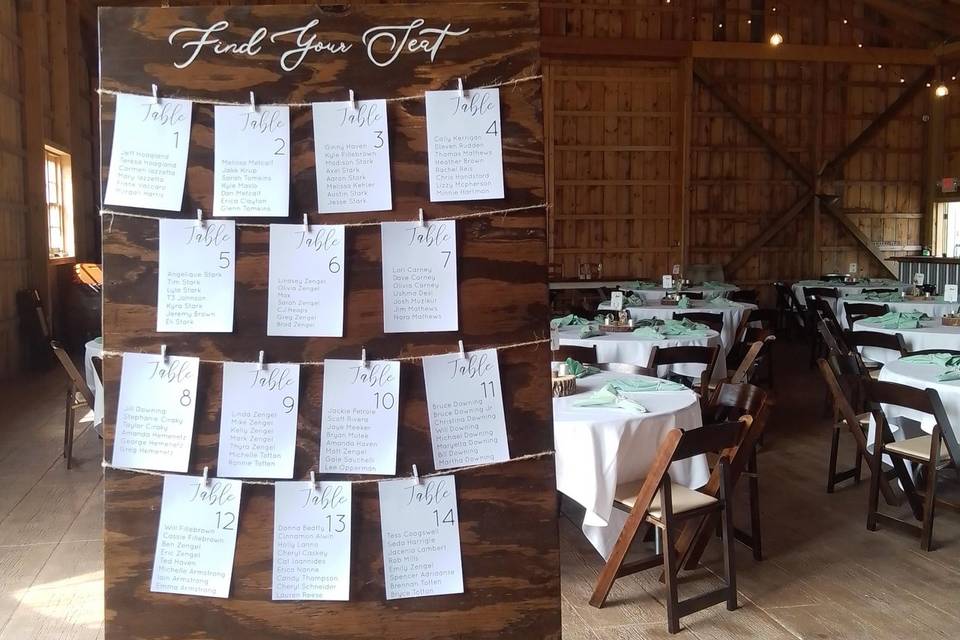 Find Your Seat
Table
1
Jeff Hoagland
Teresa Hoagland
Carmen Iazzetta
Mary Iazzetta
Frank Vaccaro
Morgan Harris
Table
2
Melissa Metcalf
Jake Krup
Sarah Tomkins
Kyle Maxlo
Dan Metcalf
Erica Clayton
Glenn Tomkins
Table
3
Ginny Haven
Kyle Fillebrown
Madison Stark
Axel Stark
Aaron Stark
Melissa Kehler
Austin Stark
Jesse Stark
Table
4
Colly Kerrigan
Steven Rudden
Thomas Mathews
Heather Brown
Rachel Reis
Chris Handsford
Lizzy Mcpherson
Minnie Hartman
Table
5
Angelique Stark
Tim Stark
Lyle Stark
TJ Johnson
Kyra Stark
Jeremy Brown
Eli Stark
Table
6
Lindsey Zengel
Olivia Zengel
Max
Saran Zengel
CJ Heaps
Brad Zengel
Table
7
Lori Carney
Dave Carney
Olivia Carney
Ushma Desi
Josh Muzikur
Jim Mathews
Nora Mathews
Table
8
Jill Downing
Stephanie Ciraky
Taylor Ciraky
Amanda Hemenetz
George Hemenetz
Greg Hemenetz
Table
9
Linda Zengel
Mike Zengel
Kelly Zengel
Mark Zengel
Myra Zengel
Michelle Totten
Ronnie Totten
Table
10
Jackie Petrole
Scott Rivera
Jaye Meeker
Bryan Mutek
Amanda Haven
Matt Zengel
Gale Sauchelli
Lee Opperman
Table
11
Bruce Downing
Bruce Downing Jr.
Christina Downing
Will Downing
Michael Downing
Maryella Downing
Bill Downing
Table
12
Will Fillebrown
Cassie Fillebrown
Ben Zengel
Eric Zengel
Ted Haven
Michelle Armstrong
Iain Armstrong
Emma Armstrong
Table
13
Donna Beatty
Cinnamon Alwin
Holly Lanno
Cheryl Caskey
Cal Ioannides
Erica Nance
Candy Thompson
Cheryl Schneider
Lauren Reese
Table
14
Tess Coogswell
Seda Harrigle
Jacenia Lambert
Rob Mills
Emily Zengel
Spencer Adriaanse
Brennan Totten
Bryce Totten